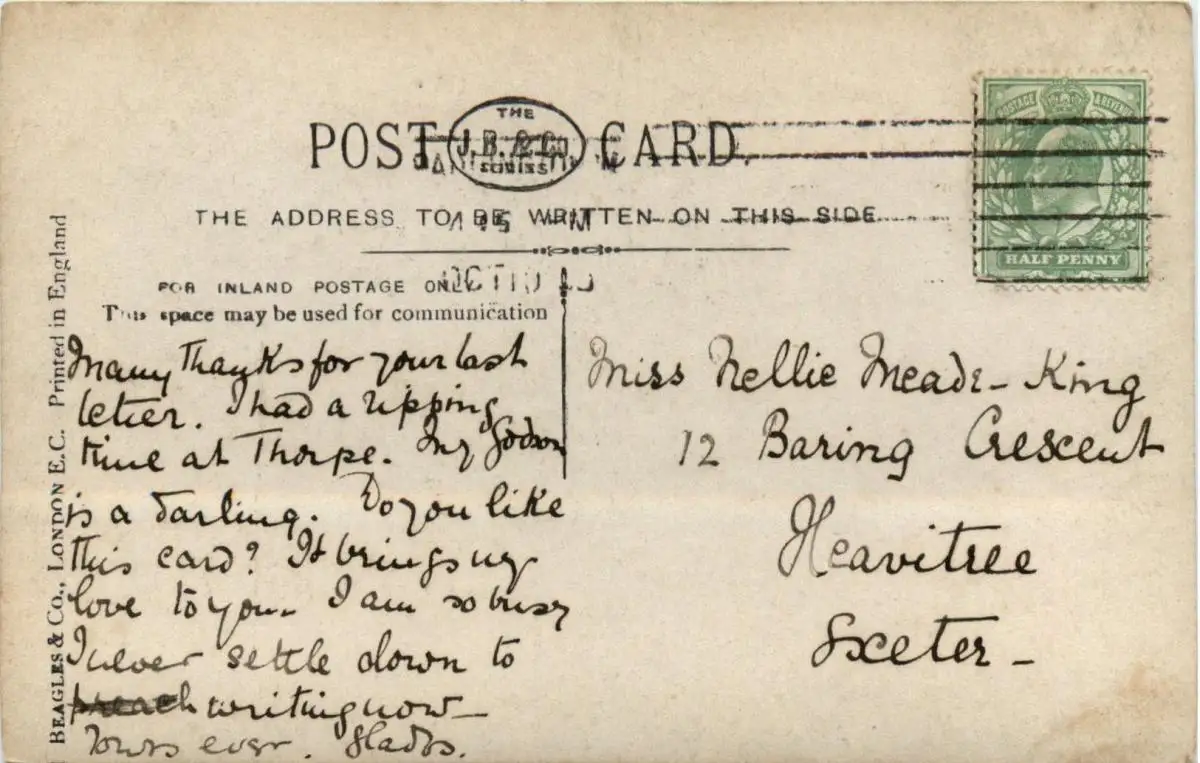 POST CARD.
THE
J. B. & Co.
SERIES
THE ADDRESS TO BE WRITTEN ON THIS SIDE
FOR INLAND POSTAGE ONLY
This space may be used for communication
HALF PENNY
POSTAGE & REVENUE
BEAGLES & Co., LONDON E.C. Printed in England
Many thanks for your last
letter. I had a ripping
time at Thorpe. My Godson
is a darling. Do you like
this card? It brings my
love to you - I am so busy
I never settle down to
writing now -
Yours ever. Gladys.
Miss Nellie Meade-King
12 Baring Crescent
Heavitree
Exeter -